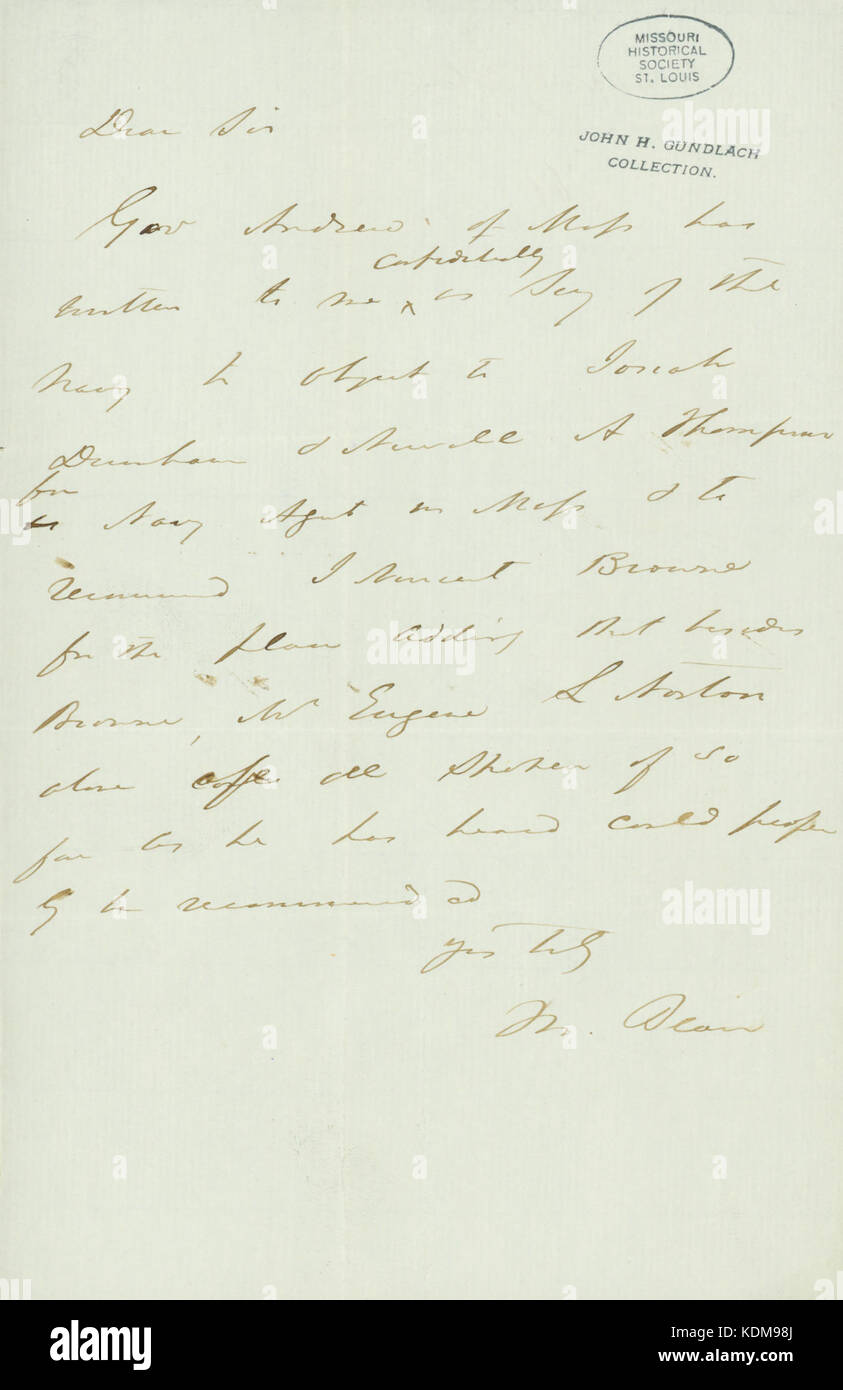 MISSOURI
HISTORICAL
SOCIETY
ST. LOUIS
JOHN H. GUNDLACH
COLLECTION.
Dear Sir
Gov Andrew of Mass has
confidentially
written to me ^ as Secy of the
Navy to object to Josiah
Dunham & Newell A Thompson
for
Navy Agent in Mass & to
recommend J Vincent Browne
for the place adding that besides
Browne, Mr Eugene L Norton
alone of all spoken of so
far as he has heard could proper
ly be recommended
Yrs trly
M. Blair
alamy
Image ID: KDM98J
www.alamy.com